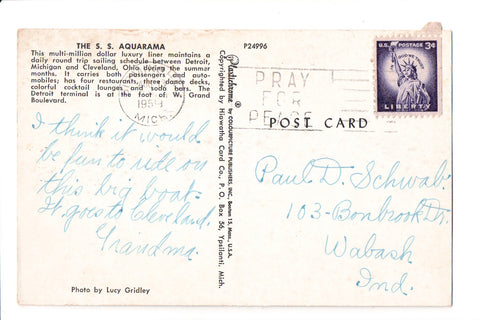 THE S. S. AQUARAMA
This multi-million dollar luxury liner maintains a
daily round trip sailing schedule between Detroit,
Michigan and Cleveland, Ohio during the summer
months. It carries both passengers and auto-
mobiles; has four restaurants, three dance decks,
colorful cocktail lounges and soda bars. The
Detroit terminal is at the foot of W. Grand
Boulevard.
I think it would
be fun to ride on
this big boat.
It goes to Cleveland.
Grandma.
Photo by Lucy Gridley
Plastichrome ® by COLOURPICTURE PUBLISHERS, INC., Boston 15, Mass., U.S.A.
Copyrighted by Hiawatha Card Co., P. O. Box 56, Ypsilanti, Mich.
P24996
1958
MICH
PRAY
FOR
PEACE
U.S. POSTAGE 3¢
LIBERTY
POST CARD
Paul D. Schwab.
103-Bonbrook Dr.
Wabash
Ind.